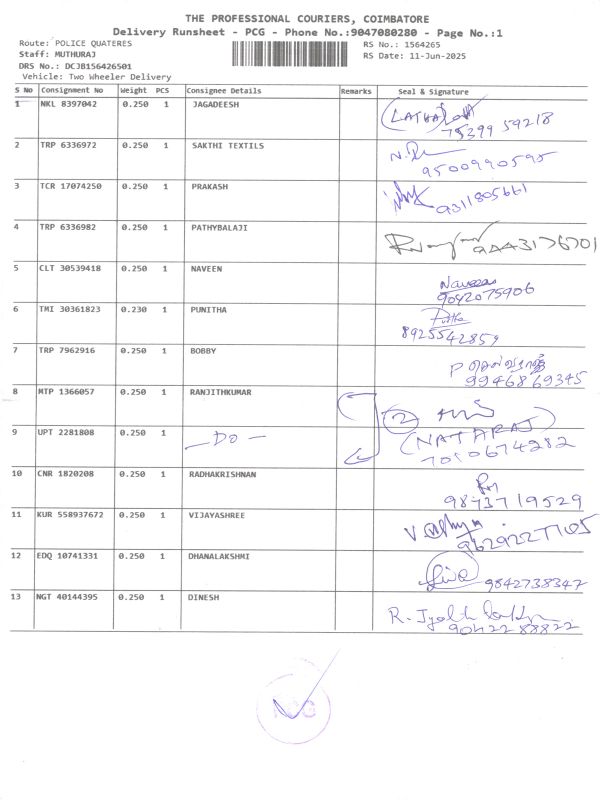 THE PROFESSIONAL COURIERS, COIMBATORE
Delivery Runsheet - PCG - Phone No.:9047080280 - Page No.:1
Route: POLICE QUATERES RS No.: 1564265
Staff: MUTHURAJ RS Date: 11-Jun-2025
DRS No.: DCJB156426501
Vehicle: Two Wheeler Delivery
S No Consignment No Weight PCS Consignee Details Remarks Seal & Signature
1 NKL 8397042 0.250 1 JAGADEESH
75399 59218
2 TRP 6336972 0.250 1 SAKTHI TEXTILS
9500990595
3 TCR 17074250 0.250 1 PRAKASH
9311805661
4 TRP 6336982 0.250 1 PATHYBALAJI
9443176701
5 CLT 30539418 0.250 1 NAVEEN Naveen
9042075906
6 TMI 30361823 0.230 1 PUNITHA
8925542859
7 TRP 7962916 0.250 1 BOBBY
9946869345
8 MTP 1366057 0.250 1 RANJITHKUMAR 2
9 UPT 2281808 0.250 1 - Do - (NATARAJ)
7010674282
10 CNR 1820208 0.250 1 RADHAKRISHNAN
9873719529
11 KUR 558937672 0.250 1 VIJAYASHREE
12 EDQ 10741331 0.250 1 DHANALAKSHMI
9842738347
13 NGT 40144395 0.250 1 DINESH
9042288822